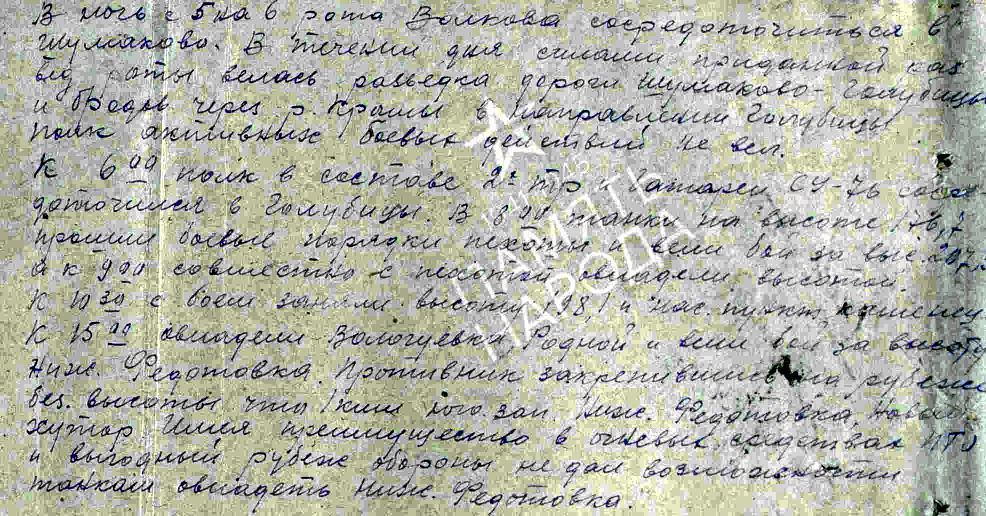 В ночь с 5 на 6 рота Волкова сосредоточиться в
Шумаково. В течении дня силами приданной каз
вед роты велась разведка дороги Шумаково - Голубицы
и броды через р. Крашы в направлении Голубицы
полк активных боевых действий не вел.
К 6 00 полк в составе 2х тр и батареи СУ-76 сосре
доточился в Голубицы. В 8 00 танки на высоте 176,7
прошли боевые порядки пехоты и вели бой за выс. 207,
а к 9 00 совместно с пехотой овладели высотой.
К 10 30 с боем заняли высоту 198,1 и нас. пункт
К 15 00 овладели Вологуевка, Родной и вели бой за высоту
Ниж. Федотовка. Противник закрепившись на рубеже
без. высоты что 1 клм юго зап Ниж. Федотовка,
хутор Имея преимущество в огневых средствах ПТО
и выгодный рубеж обороны не дал возможности
танкам овладеть Ниж. Федотовка.
ПАМЯТЬ
НАРОДА